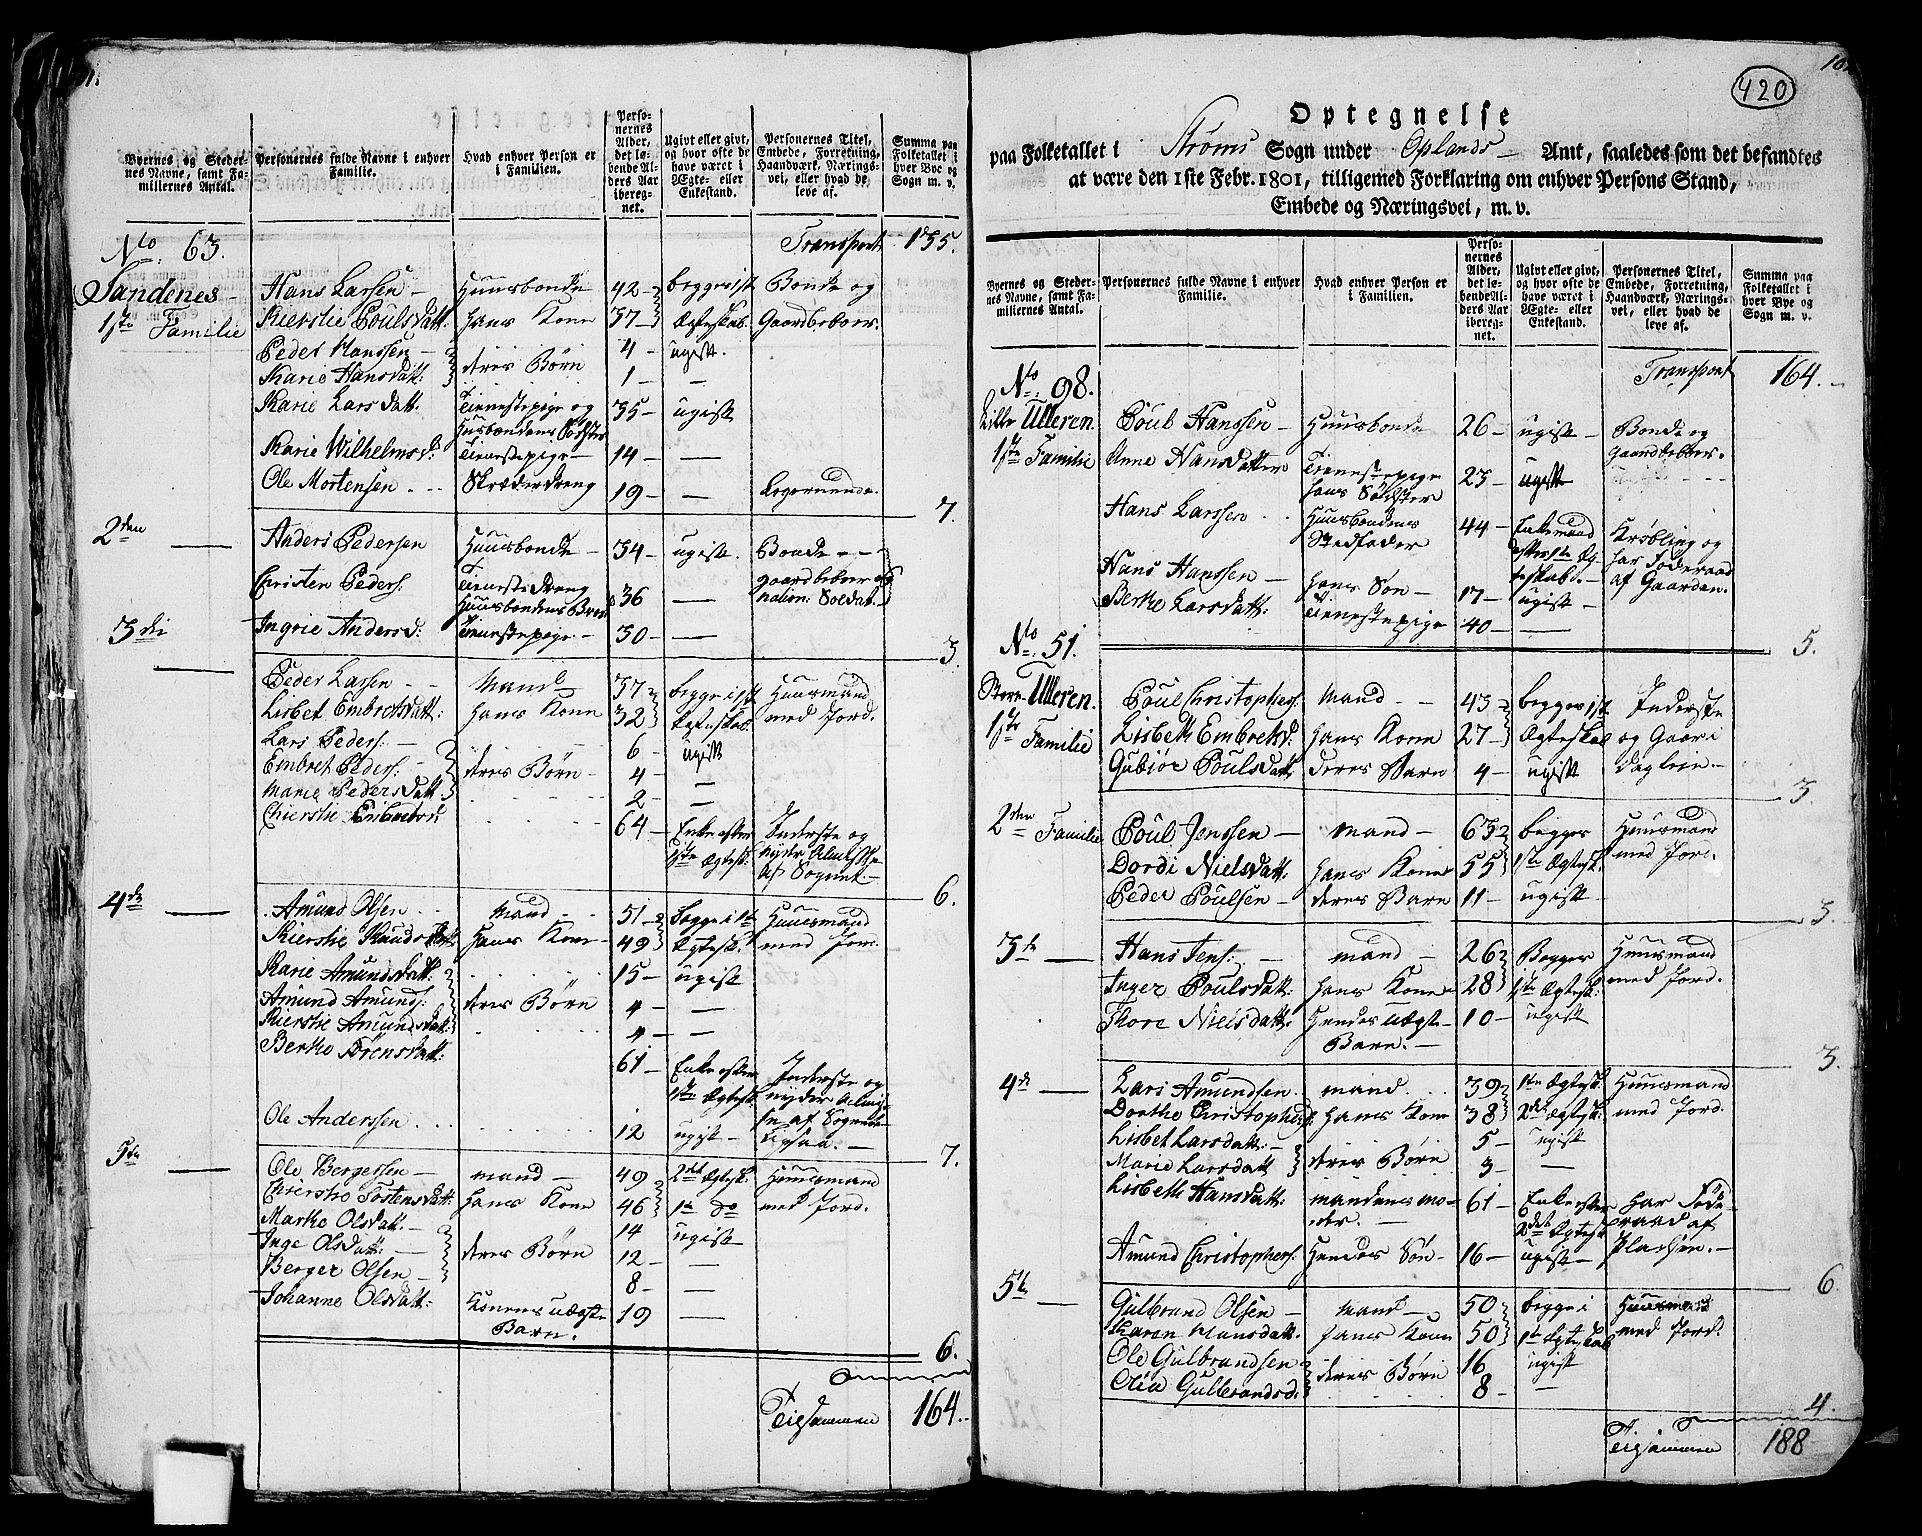 Byernes og Steder-
nes Navne, samt Fa-
miliernes Antal.
Personernes fulde Navne i enhver
Familie.
Hvad enhver Person er
i Familien.
Perso-
nernes
Alder,
det le-
bende Al-
ders Aar
iberegn-
net.
Ugivt eller givt,
og hvor ofte de
have været i
Ægte- eller
Enkestand.
Personernes Titel,
Embede, Forretning,
Haandværk, Nærings-
vei, eller hvad de
leve af.
Summa paa
Folketallet i
hver Bye og
Sogn m. v.
No. 63.
Transport 135.
Sandenes
1ste Familie
Hans Larsen Huusbonde 42 begge i 1st Bonde og
Kierstie Poulsdatt. hans Kone 37 Ægteskab. Gaardbeboer.
Peder Hanssen 4 ugift.
Marie Hansdatt: deres Børn 1 —
Marie Larsdatt. Tienestepige og 35 ugift
Husbondens Søster
Marie Wilhelmsd: Tienestepige 14 —
Ole Mortensen Skræderdreng 19 — Logerende.
7.
2den
Anders Pedersen Huusbonde 34 ugift. Bonde
Christen Peders. Tienestedreng 36 — gaardbeboer og
Huusbondens Broder nation: Soldat.
Ingrie Andersd: Tienestepige 30 —
3.
3die
Peder Larsen Mand 37 begge i 1st Huusmand
Lisbet Embretsdatt: hans Kone 32 Ægteskab. med Jord.
Lars Peders: 6 ugift
Embret Peders: deres Børn 4 —
Marie Pedersdatt 2 —
Chierstie 64 Enke efter Inderste og
1ste Ægtesk: nyder Almisse
af Sognet.
6.
4de
Amund Olsen Mand 51 Begge i 1te Huusmand
Kierstie Knudsdatt hans Kone 49 Ægtesk: med Jord.
Marie Amundsdatt: 15 ugift
Amund Amunds: deres Børn 4 —
Kierstie Amundsdatt: 4 —
Berthe Sørensdatt: 61 Enke efter Inderste og
1ste Ægtesk: nyder Almis-
se af Sognet
Ole Anderssen 12 ugift ligesaa.
7.
5te
Ole Bergersen mand 49 2det Ægtesk: Huusmand
Chierstie Tostensdatt: hans Kone 46 1te do med Jord.
Marthe Olsdatt. 14 ugift
Inge Olsdatt: deres Børn 12 —
Berger Olsen 8 —
Johanne Olsdatt: Konens uægte 19 —
Barn.
6.
Tilsammen 164.
420
Optegnelse
paa Folketallet i Strøms Sogn under Oplands Amt, saaledes som det befandtes
at være den 1ste Febr. 1801, tilligemed Forklaring om enhver Persons Stand,
Embede og Næringsvei, m. v.
Byernes og Steder-
nes Navne, samt Fa-
miliernes Antal.
Personernes fulde Navne i enhver
Familie.
Hvad enhver Person er
i Familien.
Perso-
nernes
Alder,
det le-
bende Al-
ders Aar
iberegn-
net.
Ugivt eller givt,
og hvor ofte de
have været i
Ægte- eller
Enkestand.
Personernes Titel,
Embede, Forretning,
Haandværk, Nærings-
vei, eller hvad de
leve af.
Summa paa
Folketallet i
hver Bye og
Sogn m. v.
Transport 164.
No. 98.
Lille Ulleren.
1ste Familie
Poul Hanssen Huusbonde 26 ugift Bonde og
Gaardbeboer.
Anne Hansdatter Tienestepige 23 ugift
hans Søster
Hans Larssen Huusbondens 44 Enkemand Krøbling og
Stedfader efter 1te Æg- har Føderaad
teskab. af Gaarden.
Hans Hanssen hans Søn 17 ugift
Berthe Larsdatt: Tienestepige 40 —
5.
No. 51.
Store Ulleren.
1ste Familie
Poul Christophers. Mand 43 begge i 1st Inderste
Lisbeth Embretsd: hans Kone 27 Ægteskab og Gaar i
Gubiør Poulsdatt deres Barn 4 ugift dagleie
3.
2den Familie
Poul Jenssen Mand 63 begge Huusmand
Dordi Nielsdatt: hans Kone 55 1ste Ægtesk: med Jord.
Peder Poulsen deres Barn 11 ugift
3
3te
Hans Jens: mand 26 Begge Huusmand
Inger Poulsdatt. hans Kone 28 1ste Ægtesk: med Jord.
Thore Nielsdatt: hendes uægte 10 ugift
Barn.
3.
4de
Lars Amundsen mand 39 1ste Ægtesk: Huusmand
Dorthe Christophersd: hans Kone 38 2det Ægtesk: med Jord.
Lisbet Larsdatt: 5 ugift
Marie Larsdatt deres Børn 3 —
Lisbeth Hansdatt: mandens mo- 61 Enke efter har Føde-
der. 2det Ægtesk raad af
Amund Christophers. hendes Søn 16 ugift Pladsen.
6.
5te
Gulbrand Olsen Mand 50 begge i Huusmand
Karen Hansdatt. hans Kone 50 1te Ægteskab med Jord.
Ole Gulbrandsen deres Børn 16 ugift
Olia Gulbrandsd. 8 —
4.
Tilsammen 188